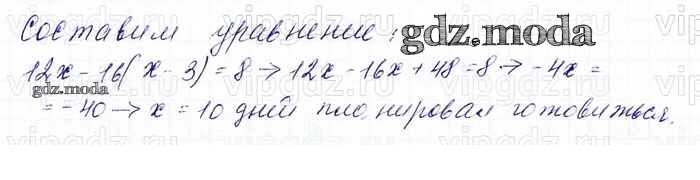 Составим уравнение: gdz.moda
12x - 16(x - 3) = 8 → 12x - 16x + 48 = 8 → -4x =
gdz.moda
= -40 → x = 10 дней планировал готовиться.